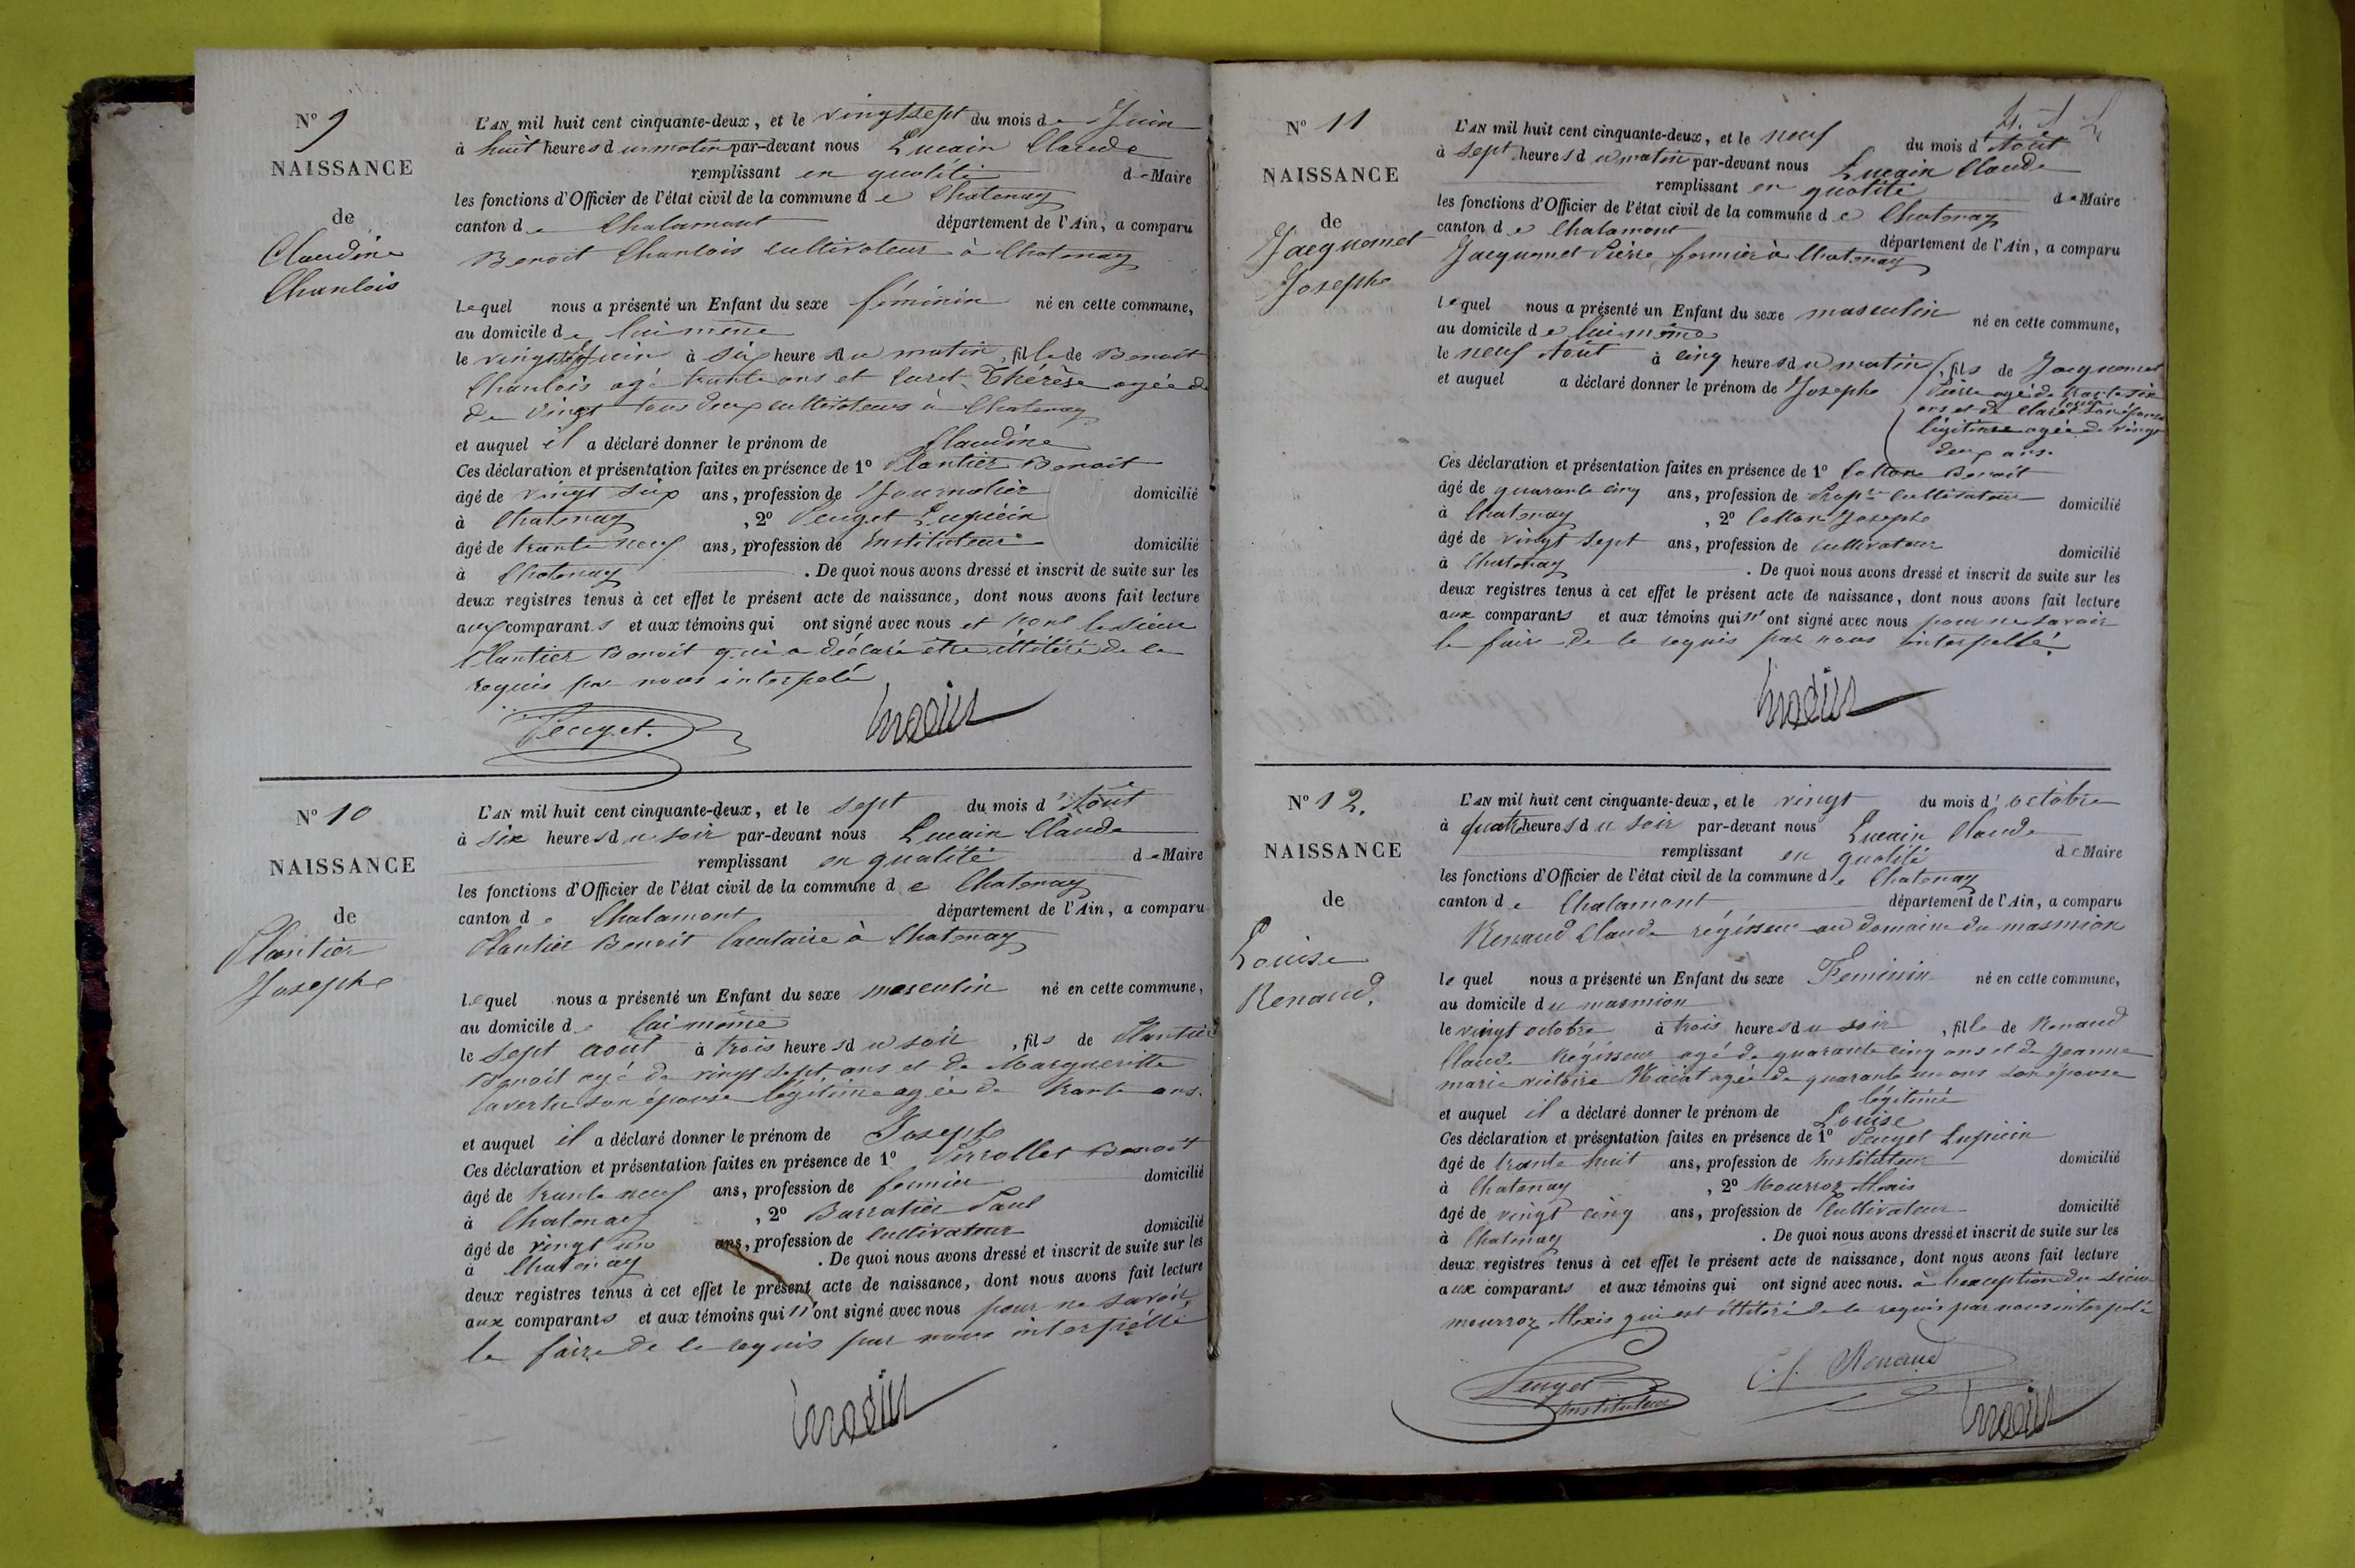 N° 9
NAISSANCE
de
Claudine
Chanlois
L'AN mil huit cent cinquante-deux, et le vingt sept du mois de Juin
à huit heures du matin par-devant nous Lucain Claude
remplissant en qualité de Maire
les fonctions d'Officier de l'état civil de la commune de Chatenay
canton de Chalamont département de l'Ain, a comparu
Benoit Chanlois cultivateur à Chatenay
lequel nous a présenté un Enfant du sexe féminin né en cette commune,
au domicile de lui même
le vingt sept juin à six heures du matin, fille de Benoit
Chanlois agé trente ans et Curet Thérèse agée de
de vingt tous deux cultivateurs à Chatenay
et auquel il a déclaré donner le prénom de Claudine
Ces déclaration et présentation faites en présence de 1° Plantier Benoit
âgé de vingt six ans, profession de Journalier domicilié
à Chatenay, 2° Peuget Lupicin
âgé de trente neuf ans, profession de Instituteur domicilié
à Chatenay. De quoi nous avons dressé et inscrit de suite sur les
deux registres tenus à cet effet le présent acte de naissance, dont nous avons fait lecture
aux comparants et aux témoins qui ont signé avec nous et non le sieur
Plantier Benoit qui a déclaré être illitéré de ce
requis par nous interpelé
Peuget.
N° 10
NAISSANCE
de
Plantier
Josephe
L'AN mil huit cent cinquante-deux, et le sept du mois d'Août
à six heures du soir par-devant nous Lucain Claude
remplissant en qualité de Maire
les fonctions d'Officier de l'état civil de la commune de Chatenay
canton de Chalamont département de l'Ain, a comparu
Plantier Benoit locataire à Chatenay
lequel nous a présenté un Enfant du sexe masculin né en cette commune,
au domicile de lui même
le sept août à trois heures du soir, fils de Plantier
Benoit agé de vingt sept ans et de Marguerite
Lavertu son épouse légitime agée de trente ans.
et auquel il a déclaré donner le prénom de Joseph
Ces déclaration et présentation faites en présence de 1° Perrollet Benoit
âgé de trente neuf ans, profession de fermier domicilié
à Chatenay, 2° Barratier Paul
âgé de vingt un ans, profession de cultivateur domicilié
à Chatenay. De quoi nous avons dressé et inscrit de suite sur les
deux registres tenus à cet effet le présent acte de naissance, dont nous avons fait lecture
aux comparants et aux témoins qui n'ont signé avec nous pour ne savoir
le faire de le requis par nous interpellé
N° 11
NAISSANCE
de
Jacquemet
Josephe
L'AN mil huit cent cinquante-deux, et le neuf du mois d'Août
à sept heures du matin par-devant nous Lucain Claude
remplissant en qualité de Maire
les fonctions d'Officier de l'état civil de la commune de Chatenay
canton de Chalamont département de l'Ain, a comparu
Jacquemet Pierre fermier à Chatenay
lequel nous a présenté un Enfant du sexe masculin né en cette commune,
au domicile de lui même
le neuf Août à cinq heures du matin, fils de Jacquemet
et auquel a déclaré donner le prénom de Josephe
Pierre agé de trente six
ans et de Claret son épouse
légitime agée de vingt
deux ans.
Ces déclaration et présentation faites en présence de 1° Cotton Benoit
âgé de quarante cinq ans, profession de Prop.re cultivateur domicilié
à Chatenay, 2° Cotton Josephe
âgé de vingt sept ans, profession de cultivateur domicilié
à Chatenay. De quoi nous avons dressé et inscrit de suite sur les
deux registres tenus à cet effet le présent acte de naissance, dont nous avons fait lecture
aux comparants et aux témoins qui n'ont signé avec nous pour ne savoir
le faire de le requis par nous interpellé.
N° 12.
NAISSANCE
de
Louise
Renaud.
L'AN mil huit cent cinquante-deux, et le vingt du mois d'octobre
à quatre heures du soir par-devant nous Lucain Claude
remplissant en qualité de Maire
les fonctions d'Officier de l'état civil de la commune de Chatenay
canton de Chalamont département de l'Ain, a comparu
Renaud Claude régisseur au domaine du masmion
lequel nous a présenté un Enfant du sexe Feminin né en cette commune,
au domicile du masmion
le vingt octobre à trois heures du soir, fille de Renaud
Claude Régisseur agé de quarante cinq ans et de Jeanne
marie victoire agée de quarante un ans son épouse
légitime
et auquel il a déclaré donner le prénom de Louise
Ces déclaration et présentation faites en présence de 1° Peuget Lupicin
âgé de trente huit ans, profession de Instituteur domicilié
à Chatenay, 2° Mourroz Alexis
âgé de vingt cinq ans, profession de Cultivateur domicilié
à Chatenay. De quoi nous avons dressé et inscrit de suite sur les
deux registres tenus à cet effet le présent acte de naissance, dont nous avons fait lecture
aux comparants et aux témoins qui ont signé avec nous. à l'exception du sieur
mourroz Alexis qui est illitéré de le requis par nous interpelé
Peuget
Instituteur
C. f. Renaud